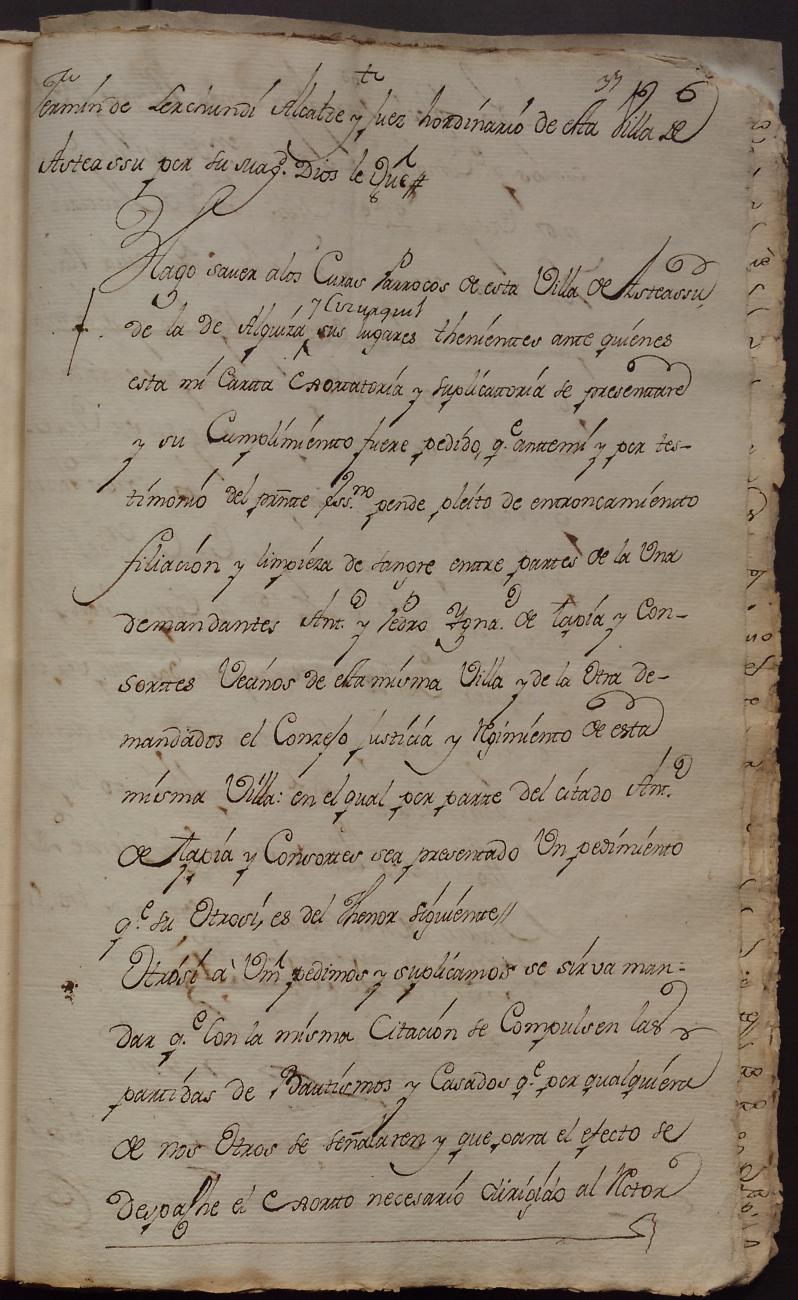 37 126
Fermín de Lerchundi Alcalde y Juez hordinario de esta Villa de
Asteassu por su magd. Dios le Gue.
Hago saver alos Curas Parrocos de esta Villa de Asteassu,
y Cizurquil
de la de Alquiza sus lugares thenientes ante quienes
esta mi Cartta Exortatoria y suplicattoria se presenttare
y su Cumplimientto fuere pedido, qe. antemi y por tes-
timonio del prnte Essno. pende pleito de entroncamientto
filiacion y limpieza de sangre entre partes de la Una
demandantes Antto. y Pedro Ygna. de Tapia y Con-
sorttes Vecinos de esta misma Villa y de la Otra de-
mandados el Conzejo Justicia y Regimiento de esta
misma Villa: en el qual por parte del citado Antto.
de Tapia y Consortes sea presentado Un pedimiento
qe. su Otrosi, es del thenor siguiente//
Otrosi à Vm. pedimos y suplicamos se sirva man-
dar qe. Con la misma Citación se Compulsen las
partidas de Bautismos y Casados qe. por qualquiera
de nos Otros se señalaren y que para el efecto se
Despache el Exortto necesario dirigido al Rector